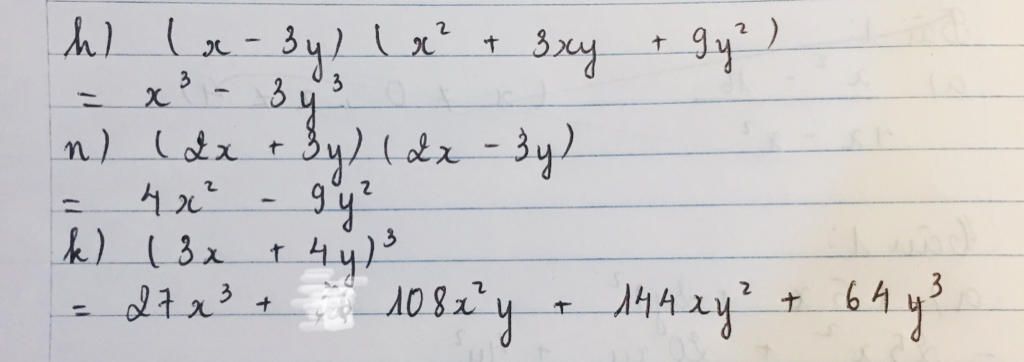 h) (x - 3y) (x² + 3xy + 9y²)
= x³ - 3y³
n) (2x + 3y) (2x - 3y)
= 4x² - 9y²
k) (3x + 4y)³
= 27x³ + 108x²y + 144xy² + 64y³